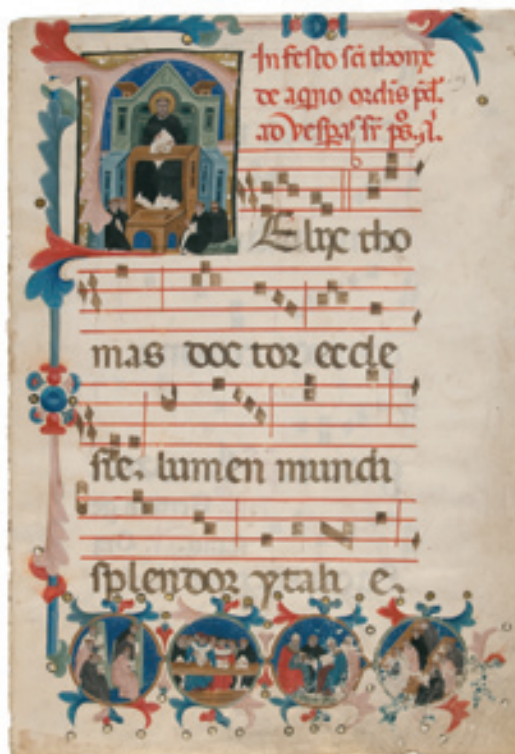 In festo sci thome
de aqino ordis pd.
ad vespas sr ps. ł.
Elix tho
mas doctor eccle
sie, lumen mundi
splendor ytalie,